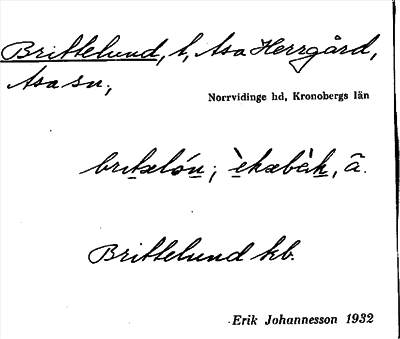 Brittelund, t, Asa Herrgård,
Asa sn.,
Norrvidinge hd, Kronobergs län
Brittelund kb.
Erik Johannesson 1932